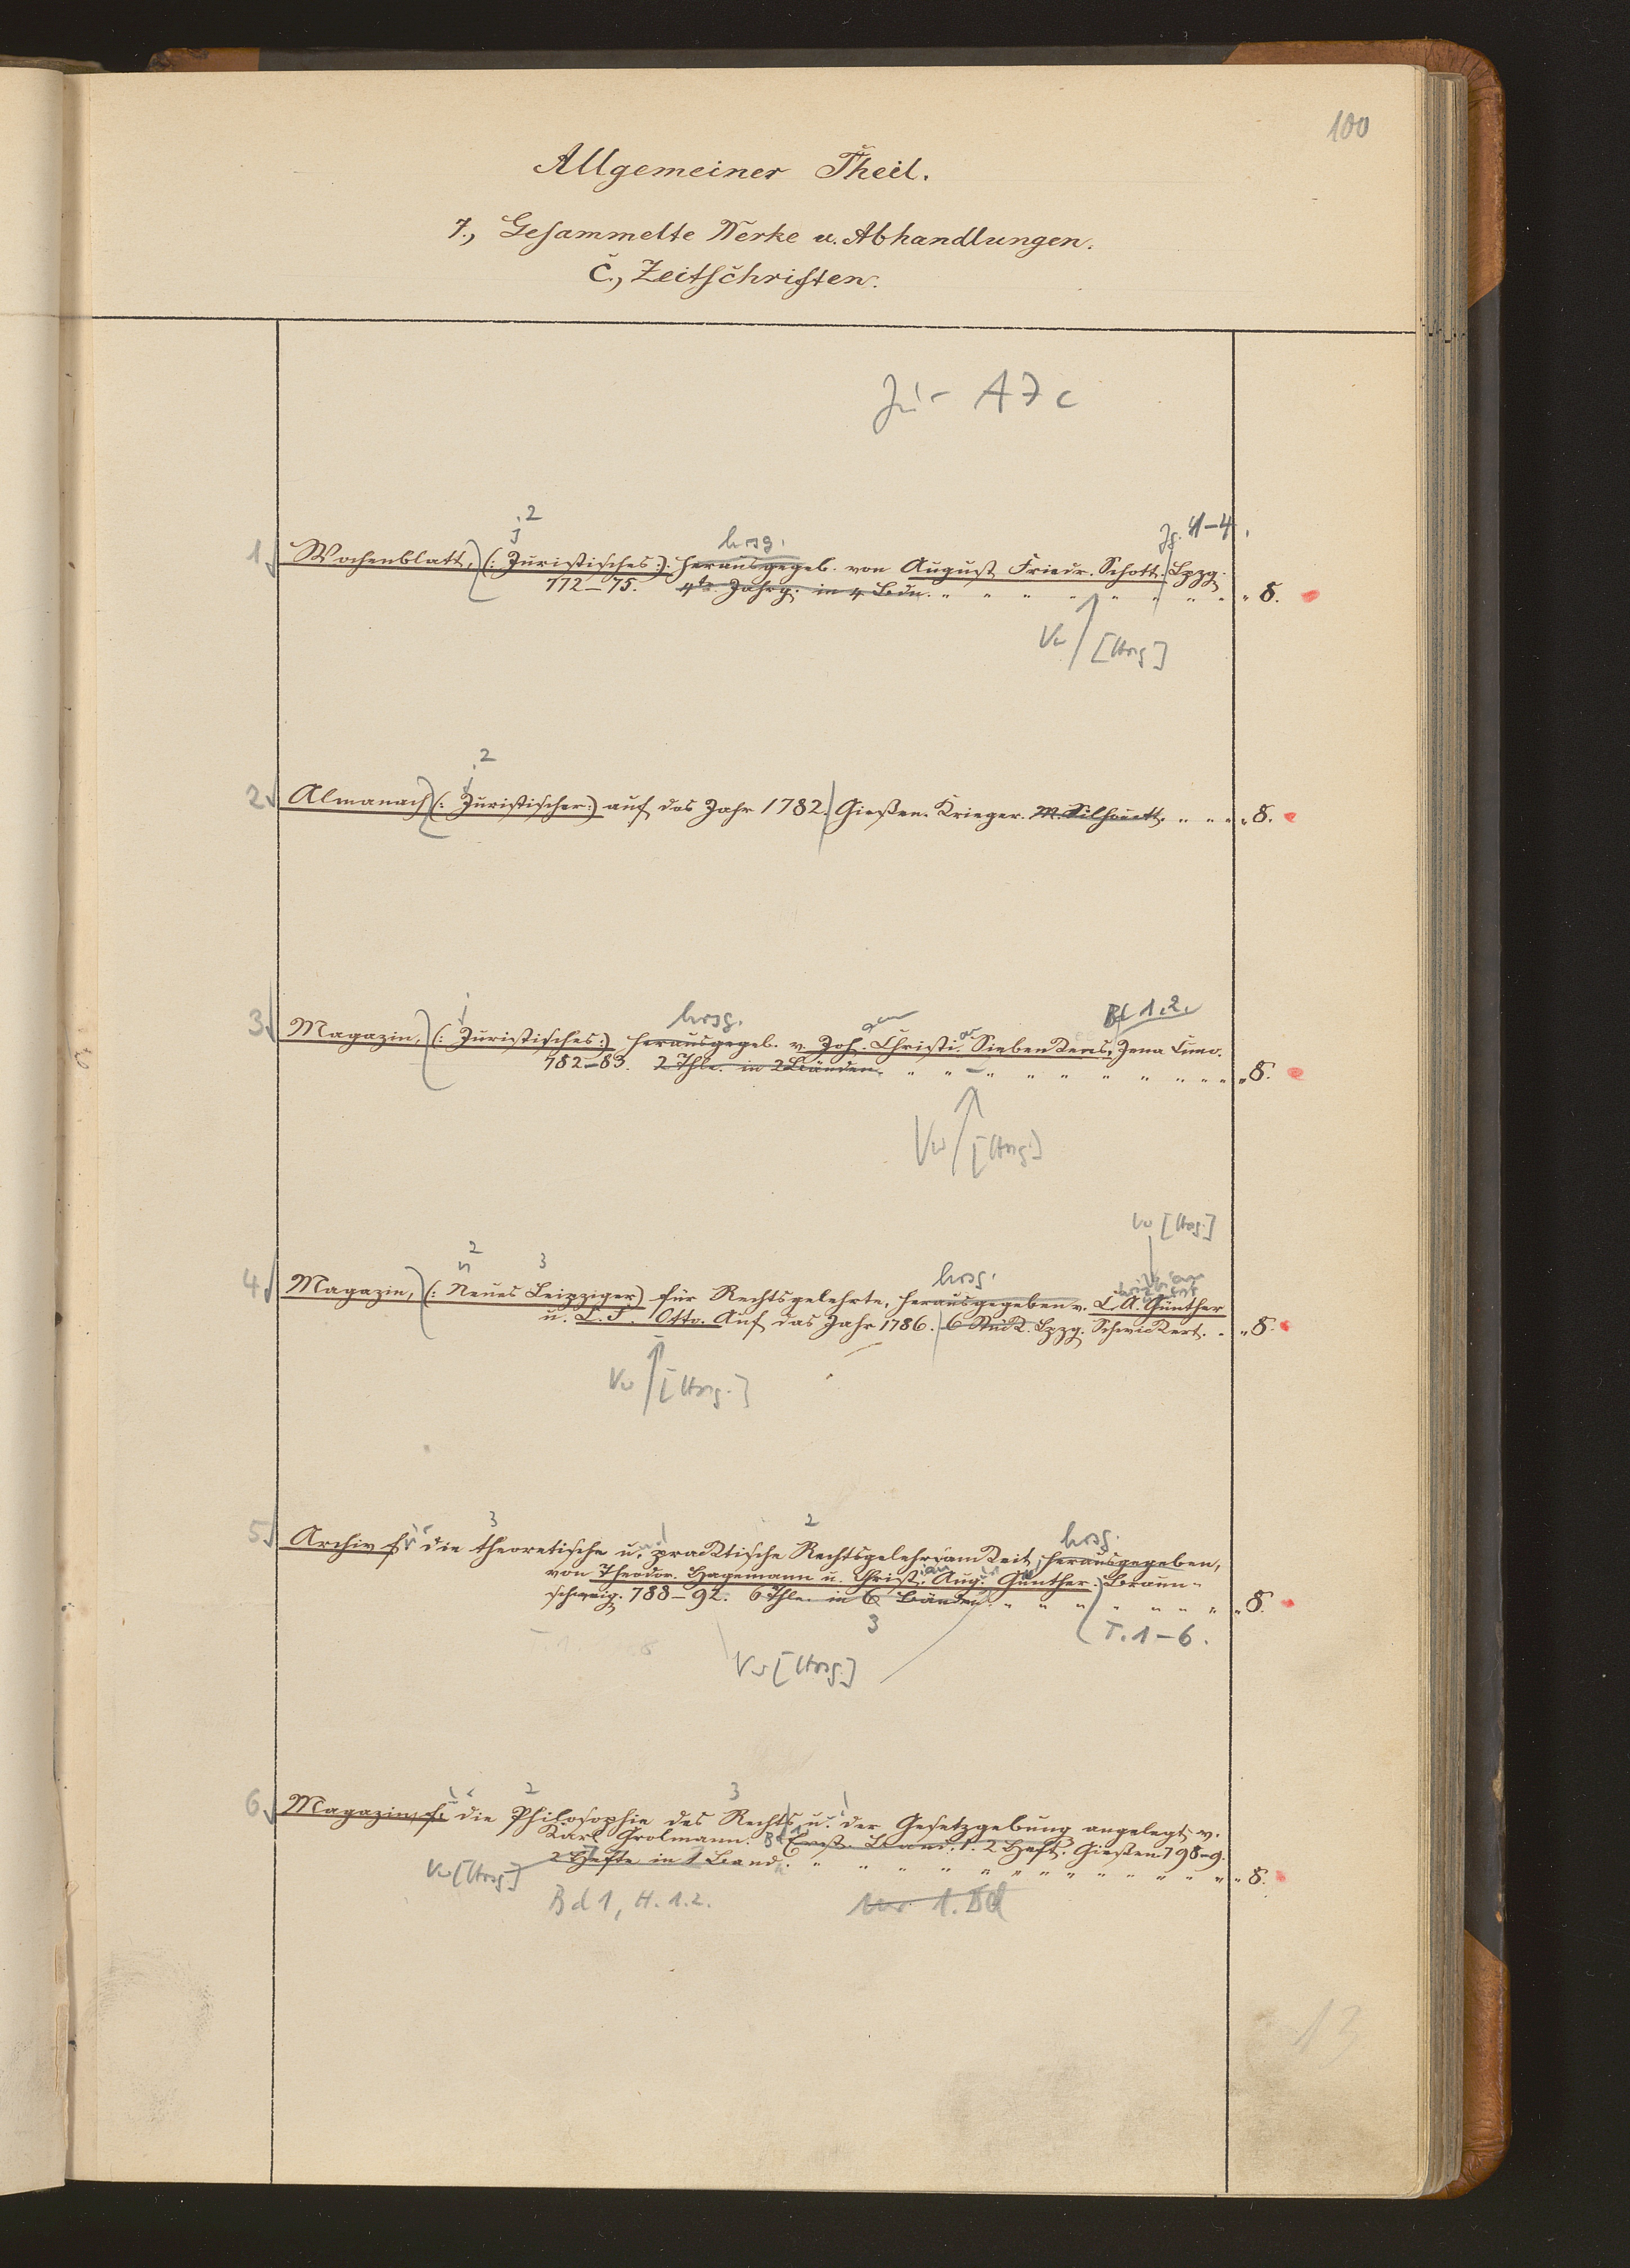 100
Allgemeiner Theil.
7., Gesammelte Werke u. Abhandlungen.
C., Zeitschriften.
Jur A 7 c
2
j hrsg. Jg. 1-4.
1 Wochenblatt, (: Juristisches :). herausgegeb. von August Friedr. Schott. Lpzg.
772–75. 4te. Jahrg. in 4 Bdn. " " " " " " " " " 8.
Vw [Hrsg]
2
j
2 Almanach (: Juristischer :) auf das Jahr 1782. Gießen. Krieger. M. Silhouett. " " " " 8.
j hrsg. gen Bd 1.2.
3 Magazin, (: Juristisches :) herausgegeb. v. Joh. Christi. Siebenkens, Jena Cuno.
782–83. 2 Thle. in 2 Bänden. " " " " " " " " " " " 8.
Vw [Hrsg]
Vw [Hrsg.]
2
n 3 hrsg.
4 Magazin, (: Neues Leipziger) für Rechtsgelehrte, herausgegeben v. C. A. Günther
u. C. F. Otto. Auf das Jahr 1786. 6 Stück. Lpzg. Schwickert. " " 8.
Vw [Hrsg.]
3 2 hrsg.
5 Archiv f. die theoretische u. pracktische Rechtsgelehrsamkeit, herausgegeben,
von Theodor. Hagemann u. Christ. Aug. Günther. Braun-
schweig. 788–92. 6 Thle. in 6 Bänden. " " " " " " " " 8.
3
T. 1–6.
Vw [Hrsg.]
2 3
6 Magazin, f. die Philosophie des Rechts u. der Gesetzgebung angelegt v.
Karl Grolmann. Bd 1 Erst. Band. 1. 2 Heft. Gießen 798–9.
2 Hefte in 1 Band. " " " " " " " " " " " " " 8.
Vw [Hrsg]
Bd 1, H. 1.2. nur 1. Bd
13